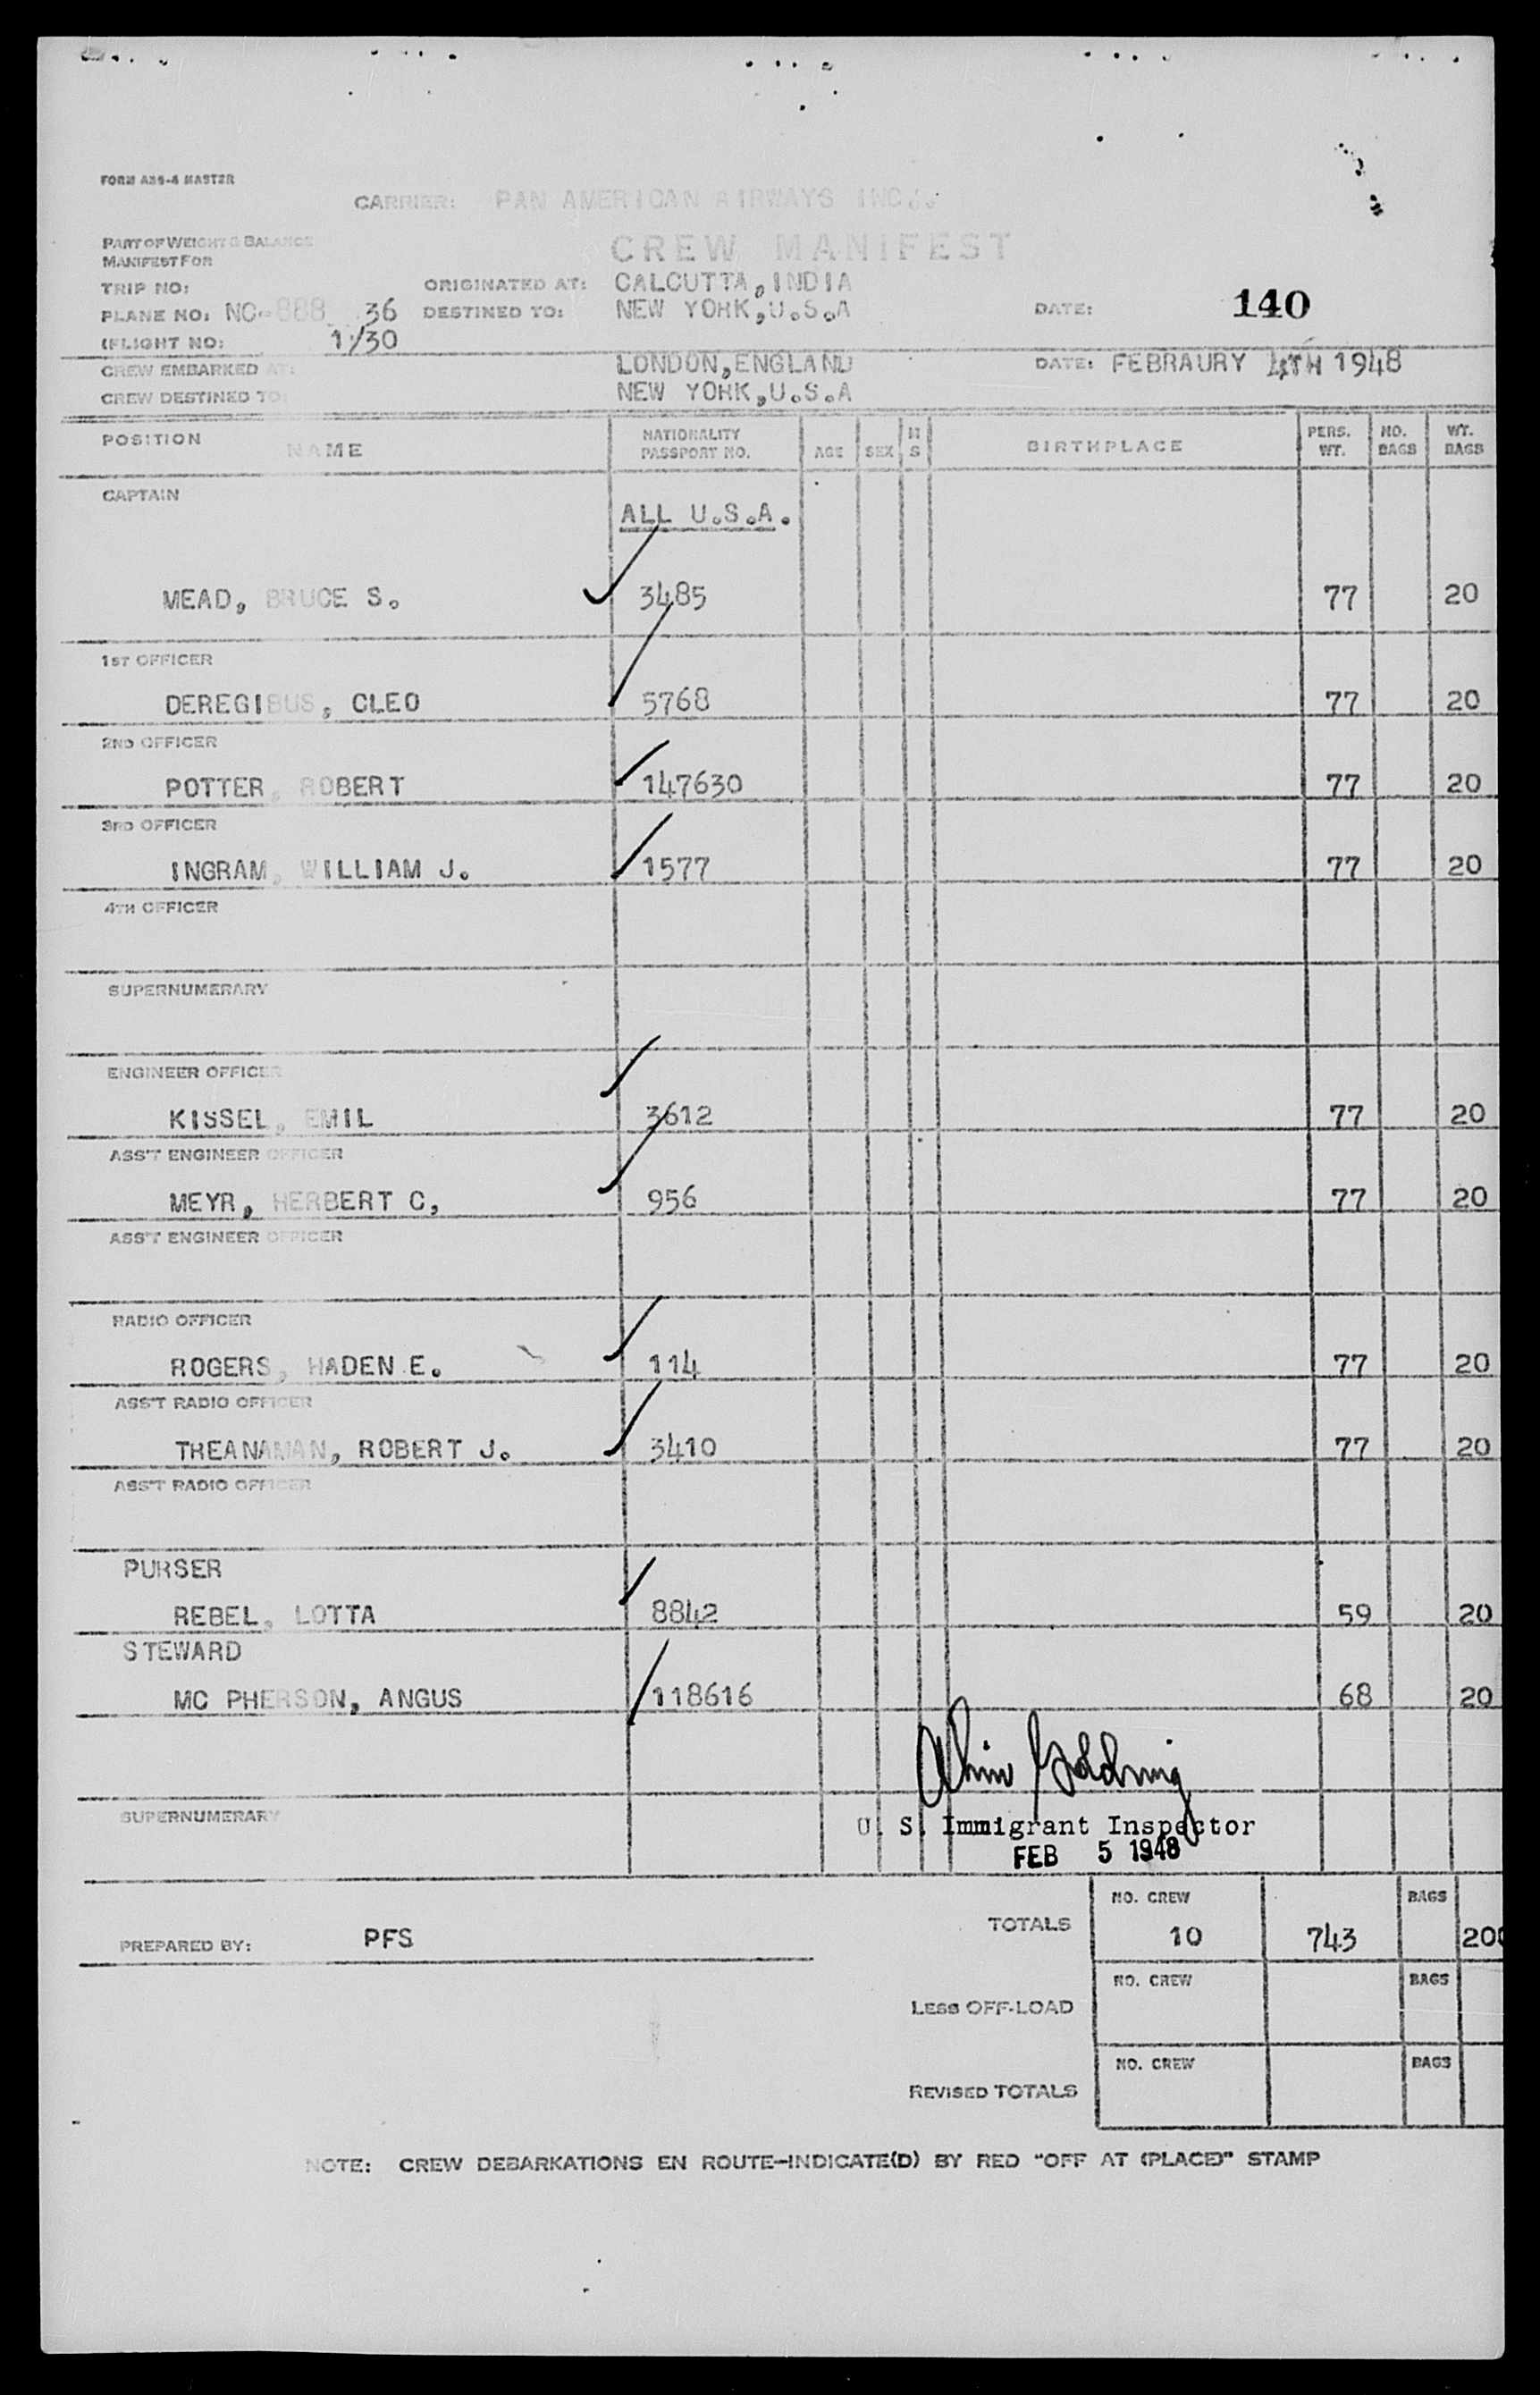 FORM A36-4 MASTER
CARRIER: PAN AMERICAN AIRWAYS INC..
PART OF WEIGHT & BALANCE
MANIFEST FOR
CREW MANIFEST
TRIP NO: ORIGINATED AT: CALCUTTA, INDIA
PLANE NO: NC-888 36 DESTINED TO: NEW YORK, U.S.A DATE: 140
(FLIGHT NO: 1/30
CREW EMBARKED AT: LONDON, ENGLAND DATE: FEBRAURY 4TH 1948
CREW DESTINED TO: NEW YORK, U.S.A
POSITION NAME NATIONALITY PASSPORT NO. AGE SEX M S BIRTHPLACE PERS. WT. NO. BAGS WT. BAGS
CAPTAIN
ALL U.S.A.
MEAD, BRUCE S. 3485 77 20
1ST OFFICER
DEREGIBUS, CLEO 5768 77 20
2ND OFFICER
POTTER, ROBERT 147630 77 20
3RD OFFICER
INGRAM, WILLIAM J. 1577 77 20
4TH OFFICER
SUPERNUMERARY
ENGINEER OFFICER
KISSEL, EMIL 3612 77 20
ASS'T ENGINEER OFFICER
MEYR, HERBERT C, 956 77 20
ASS'T ENGINEER OFFICER
RADIO OFFICER
ROGERS, HADEN E. 114 77 20
ASS'T RADIO OFFICER
TREANAMAN, ROBERT J. 3410 77 20
ASS'T RADIO OFFICER
PURSER
REBEL, LOTTA 8842 59 20
STEWARD
MC PHERSON, ANGUS 118616 68 20
SUPERNUMERARY
U. S. Immigrant Inspector
FEB 5 1948
PREPARED BY: PFS
TOTALS NO. CREW 10 743 BAGS 200
LESS OFF-LOAD NO. CREW BAGS
REVISED TOTALS NO. CREW BAGS
NOTE: CREW DEBARKATIONS EN ROUTE-INDICATE(D) BY RED "OFF AT (PLACE)" STAMP